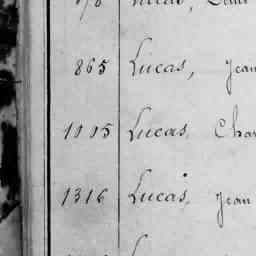 865 Lucas, Jean
1105 Lucas, Char
1316 Lucas, Jean